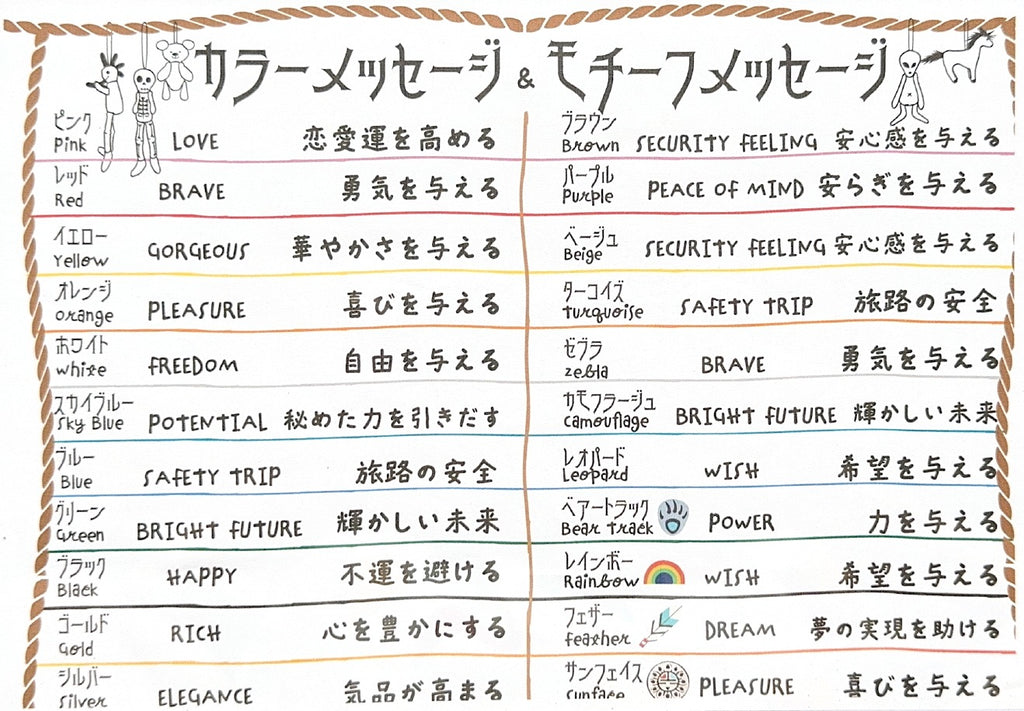 カラーメッセージ & モチーフメッセージ
ピンク
Pink LOVE 恋愛運を高める
レッド
Red BRAVE 勇気を与える
イエロー
Yellow GORGEOUS 華やかさを与える
オレンジ
orange PLEASURE 喜びを与える
ホワイト
white FREEDOM 自由を与える
スカイブルー
Sky Blue POTENTIAL 秘めた力を引きだす
ブルー
Blue SAFETY TRIP 旅路の安全
グリーン
Green BRIGHT FUTURE 輝かしい未来
ブラック
Black HAPPY 不運を避ける
ゴールド
Gold RICH 心を豊かにする
シルバー
Silver ELEGANCE 気品が高まる
ブラウン
Brown SECURITY FEELING 安心感を与える
パープル
Purple PEACE OF MIND 安らぎを与える
ベージュ
Beige SECURITY FEELING 安心感を与える
ターコイズ
turquoise SAFETY TRIP 旅路の安全
ゼブラ
zebla BRAVE 勇気を与える
カモフラージュ
camouflage BRIGHT FUTURE 輝かしい未来
レオパード
Leopard WISH 希望を与える
ベアートラック
Bear track POWER 力を与える
レインボー
Rainbow WISH 希望を与える
フェザー
feather DREAM 夢の実現を助ける
サンフェイス
Sunface PLEASURE 喜びを与える